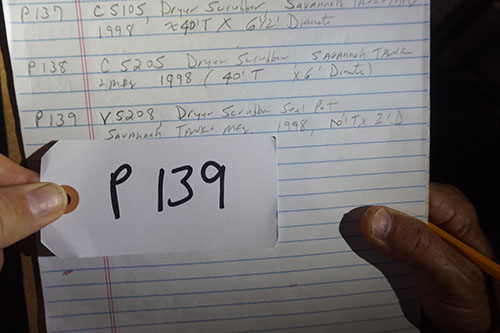 P137 C 5105, Dryer Scrubber Savannah Tank & Mfg
1998 x 40' T X 6 1/2' Diamete
P138 C 5205 Dryer Scrubber, Savannah Tank
& Mfg 1998 ( 40' T x 6' Diamte)
P139 V5208, Dryer Scrubber Seal Pot
Savannah Tank & Mfg. 1998, 10' T X 2' D
P 139